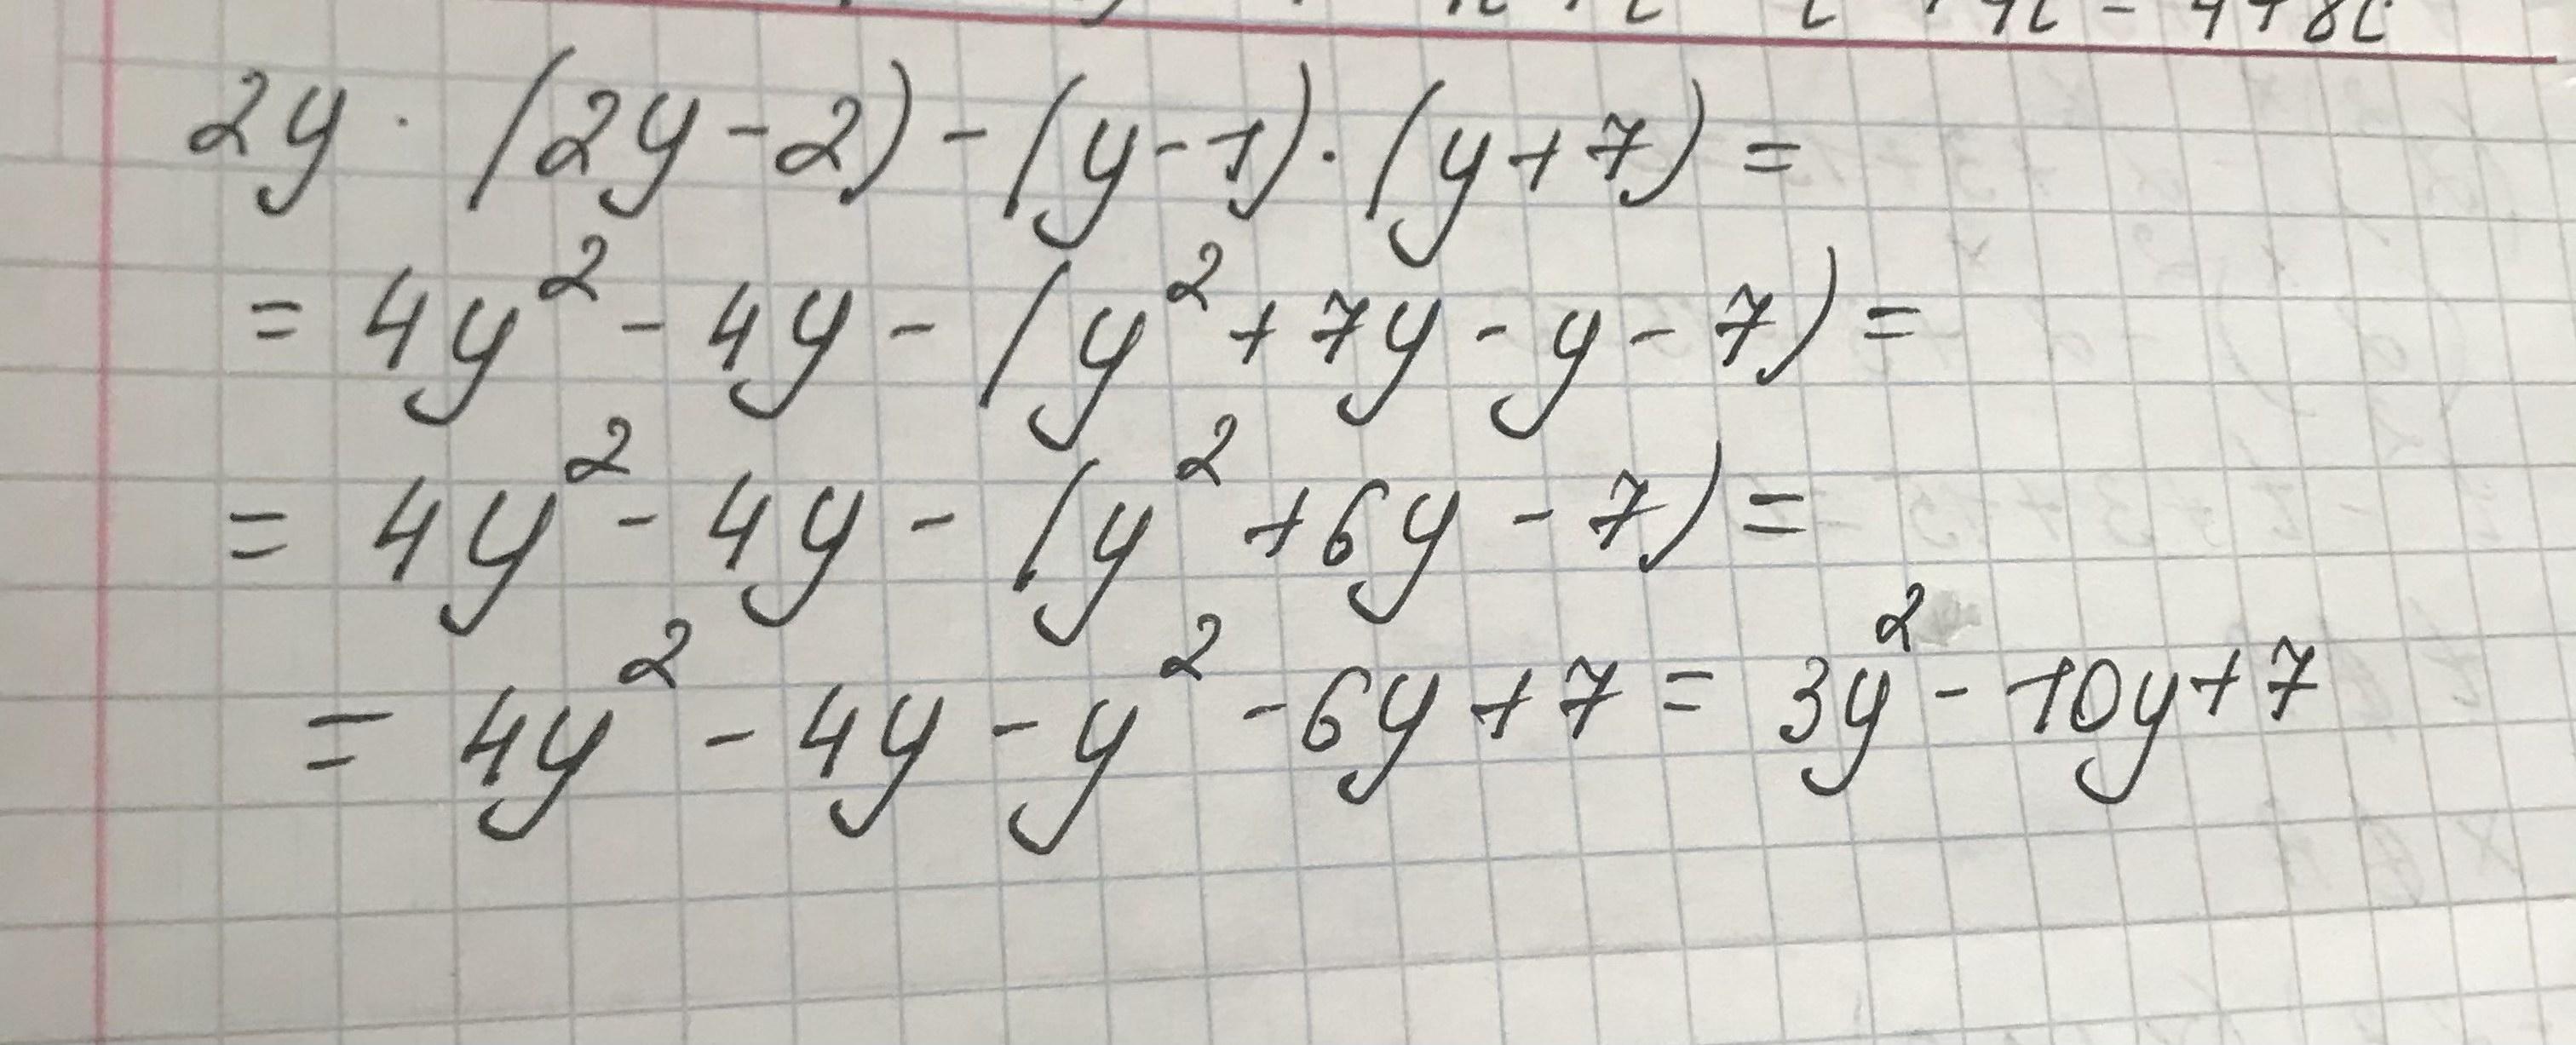 2y · (2y - 2) - (y - 1) · (y + 7) =
= 4y² - 4y - (y² + 7y - y - 7) =
= 4y² - 4y - (y² + 6y - 7) =
= 4y² - 4y - y² - 6y + 7 = 3y² - 10y + 7